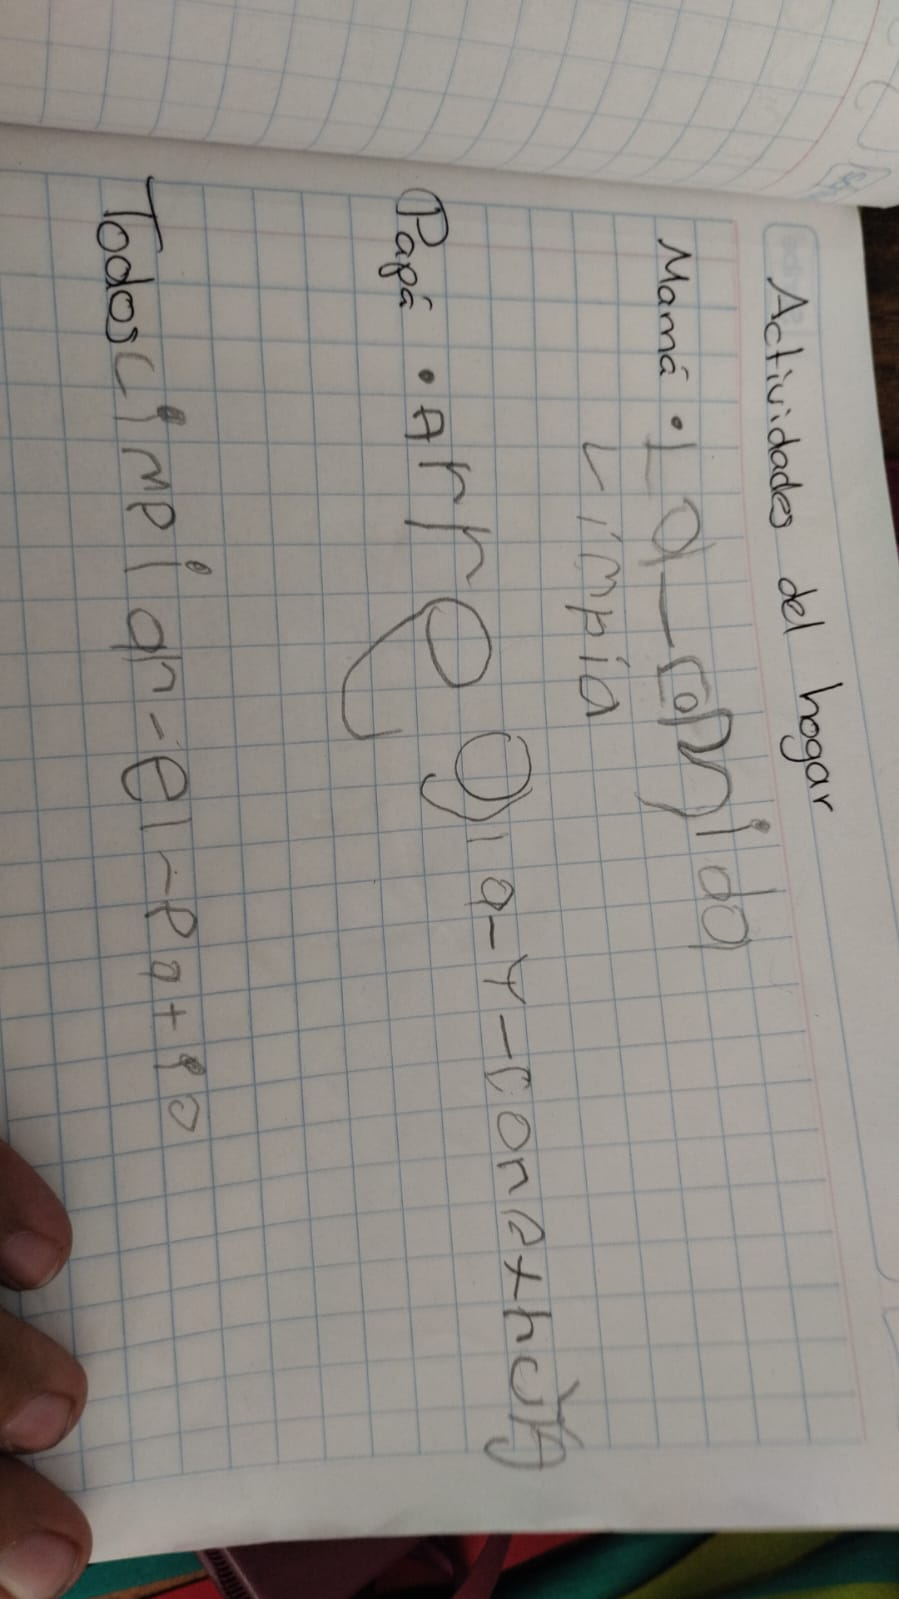 Actividades del hogar
Mamá • La-comida
Limpia
Papá • Arregla-Y-construye
Todos Limpian-el-Patio